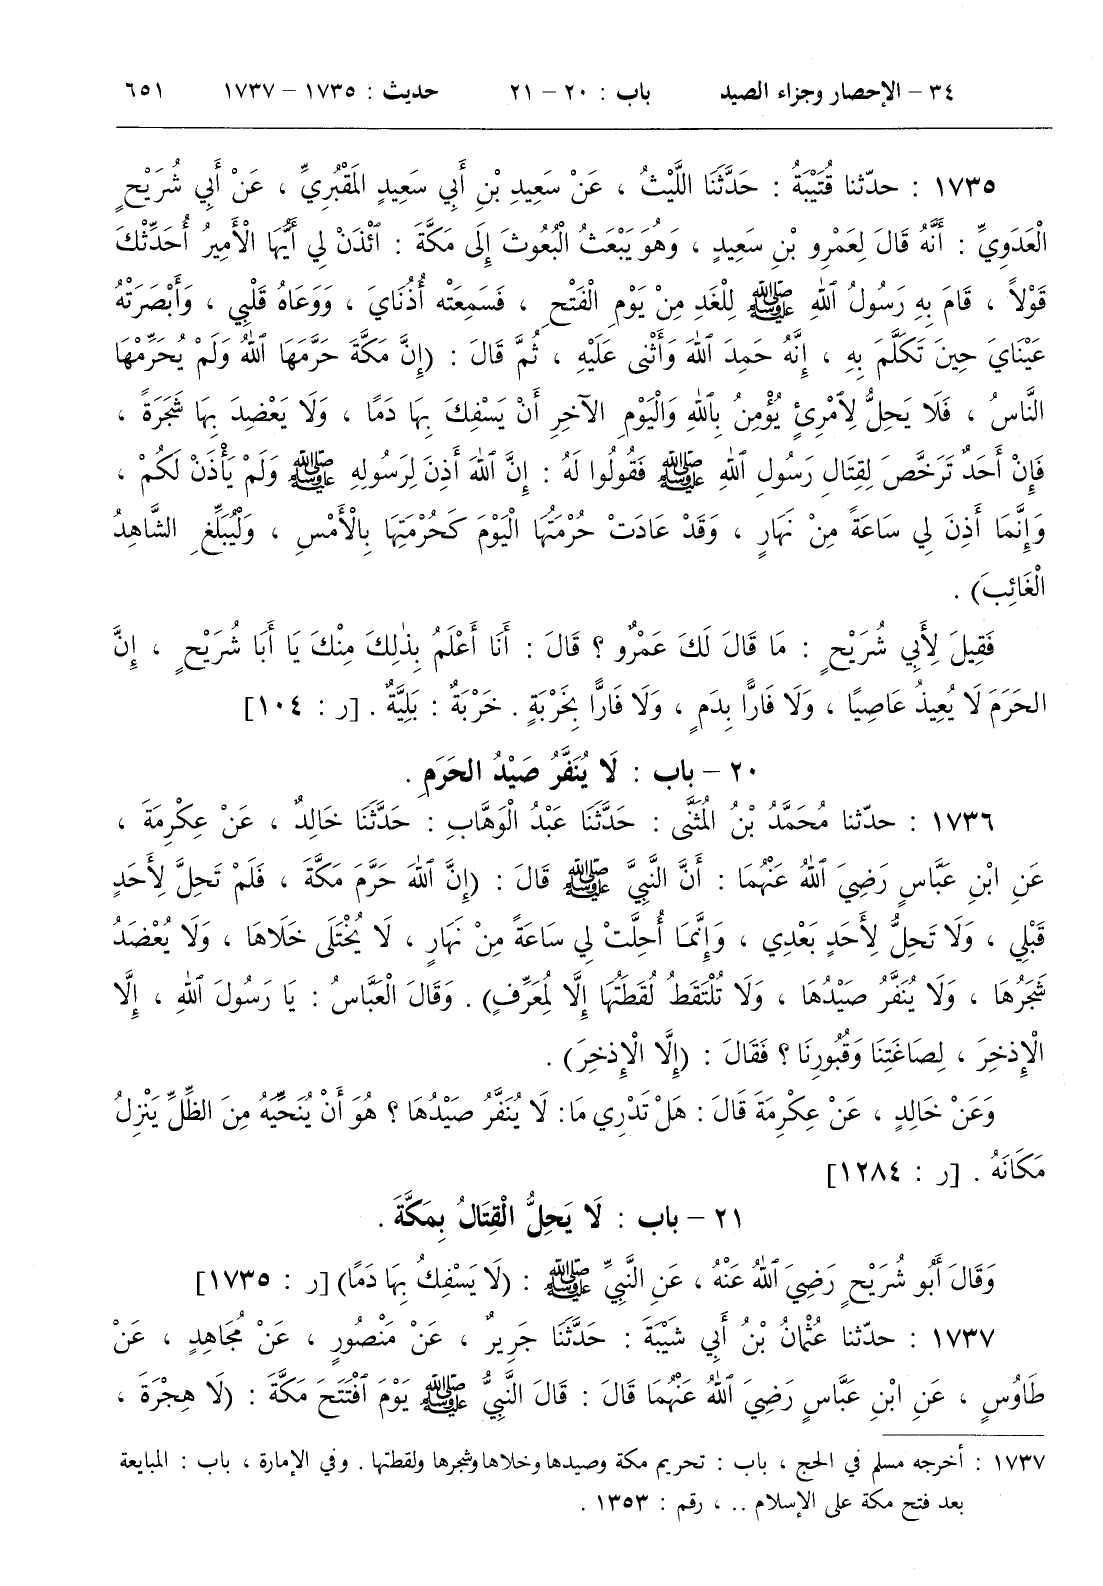 ٣٤ – الإحصار وجزاء الصيد باب : ٢٠ – ٢١ حديث : ١٧٣٥ – ١٧٣٧ ٦٥١
١٧٣٥ : حدّثنا قُتَيْبَةُ : حَدَّثَنَا اللَّيْثُ ، عَنْ سَعِيدِ بْنِ أَبِي سَعِيدٍ المَقْبُرِيِّ ، عَنْ أَبِي شُرَيْحٍ
الْعَدَوِيِّ : أَنَّهُ قَالَ لِعَمْرِو بْنِ سَعِيدٍ ، وَهُوَ يَبْعَثُ الْبُعُوثَ إِلَى مَكَّةَ : ٱئْذَنْ لِي أَيُّهَا الْأَمِيرُ أُحَدِّثْكَ
قَوْلاً ، قَامَ بِهِ رَسُولُ ٱللهِ ﷺ لِلْغَدِ مِنْ يَوْمِ الْفَتْحِ ، فَسَمِعَتْه أُذُنَايَ ، وَوَعَاهُ قَلْبِي ، وَأَبْصَرَتْهُ
عَيْنَايَ حِينَ تَكَلَّمَ بِهِ ، إِنَّهُ حَمِدَ ٱللهَ وَأَثْنى عَلَيْهِ ، ثُمَّ قَالَ : (إِنَّ مَكَّةَ حَرَّمَهَا ٱللهُ وَلَمْ يُحَرِّمْهَا
النَّاسُ ، فَلَا يَحِلُّ لِٱمْرِئٍ يُؤْمِنُ بِٱللهِ وَالْيَوْمِ الآخِرِ أَنْ يَسْفِكَ بِهَا دَمًا ، وَلَا يَعْضِدَ بِهَا شَجَرَةً ،
فَإِنْ أَحَدٌ تَرَخَّصَ لِقِتَالِ رَسُولِ ٱللهِ ﷺ فَقُولُوا لَهُ : إِنَّ ٱللهَ أَذِنَ لِرَسُولِهِ ﷺ وَلَمْ يَأْذَنْ لَكُمْ ،
وَإِنَّمَا أَذِنَ لِي سَاعَةً مِنْ نَهَارٍ ، وَقَدْ عَادَتْ حُرْمَتُهَا الْيَوْمَ كَحُرْمَتِهَا بِالْأَمْسِ ، وَلْيُبَلِّغِ الشَّاهِدُ
الْغَائِبَ) .
فَقِيلَ لِأَبِي شُرَيْحٍ : مَا قَالَ لَكَ عَمْرٌو ؟ قَالَ : أَنَا أَعْلَمُ بِذٰلِكَ مِنْكَ يَا أَبَا شُرَيْحٍ ، إِنَّ
الحَرَمَ لَا يُعِيذُ عَاصِيًا ، وَلَا فَارًّا بِدَمٍ ، وَلَا فَارًّا بِخَرْبَةٍ . خَرْبَةٌ : بَلِيَّةٌ . [ر : ١٠٤]
٢٠ – باب : لَا يُنَفَّرُ صَيْدُ الحَرَمِ .
١٧٣٦ : حدّثنا مُحَمَّدُ بْنُ المُثَنَّى : حَدَّثَنَا عَبْدُ الْوَهَّابِ : حَدَّثَنَا خَالِدٌ ، عَنْ عِكْرِمَةَ ،
عَنِ ابْنِ عَبَّاسٍ رَضِيَ ٱللهُ عَنْهُمَا : أَنَّ النَّبِيَّ ﷺ قَالَ : (إِنَّ ٱللهَ حَرَّمَ مَكَّةَ ، فَلَمْ تَحِلَّ لِأَحَدٍ
قَبْلِي ، وَلَا تَحِلُّ لِأَحَدٍ بَعْدِي ، وَإِنَّمَا أُحِلَّتْ لِي سَاعَةً مِنْ نَهَارٍ ، لَا يُخْتَلَى خَلَاهَا ، وَلَا يُعْضَدُ
شَجَرُهَا ، وَلَا يُنَفَّرُ صَيْدُهَا ، وَلَا تُلْتَقَطُ لُقَطَتُهَا إِلَّا لِمُعَرِّفٍ) . وَقَالَ الْعَبَّاسُ : يَا رَسُولَ ٱللهِ ، إِلَّا
الْإِذْخِرَ ، لِصَاغَتِنَا وَقُبُورِنَا ؟ فَقَالَ : (إِلَّا الْإِذْخِرَ) .
وَعَنْ خَالِدٍ ، عَنْ عِكْرِمَةَ قَالَ : هَلْ تَدْرِي مَا : لَا يُنَفَّرُ صَيْدُهَا ؟ هُوَ أَنْ يُنَحِّيَهُ مِنَ الظِّلِّ يَنْزِلُ
مَكَانَهُ . [ر : ١٢٨٤]
٢١ – باب : لَا يَحِلُّ الْقِتَالُ بِمَكَّةَ .
وَقَالَ أَبُو شُرَيْحٍ رَضِيَ ٱللهُ عَنْهُ ، عَنِ النَّبِيِّ ﷺ : (لَا يَسْفِكُ بِهَا دَمًا) [ر : ١٧٣٥]
١٧٣٧ : حدّثنا عُثْمَانُ بْنُ أَبِي شَيْبَةَ : حَدَّثَنَا جَرِيرٌ ، عَنْ مَنْصُورٍ ، عَنْ مُجَاهِدٍ ، عَنْ
طَاوُسٍ ، عَنِ ابْنِ عَبَّاسٍ رَضِيَ ٱللهُ عَنْهُمَا قَالَ : قَالَ النَّبِيُّ ﷺ يَوْمَ ٱفْتَتَحَ مَكَّةَ : (لَا هِجْرَةَ ،
١٧٣٧ : أخرجه مسلم في الحج ، باب : تحريم مكة وصيدها وخلاها وشجرها ولقطتها . وفي الإمارة ، باب : المبايعة
بعد فتح مكة على الإسلام .. ، رقم : ١٣٥٣ .